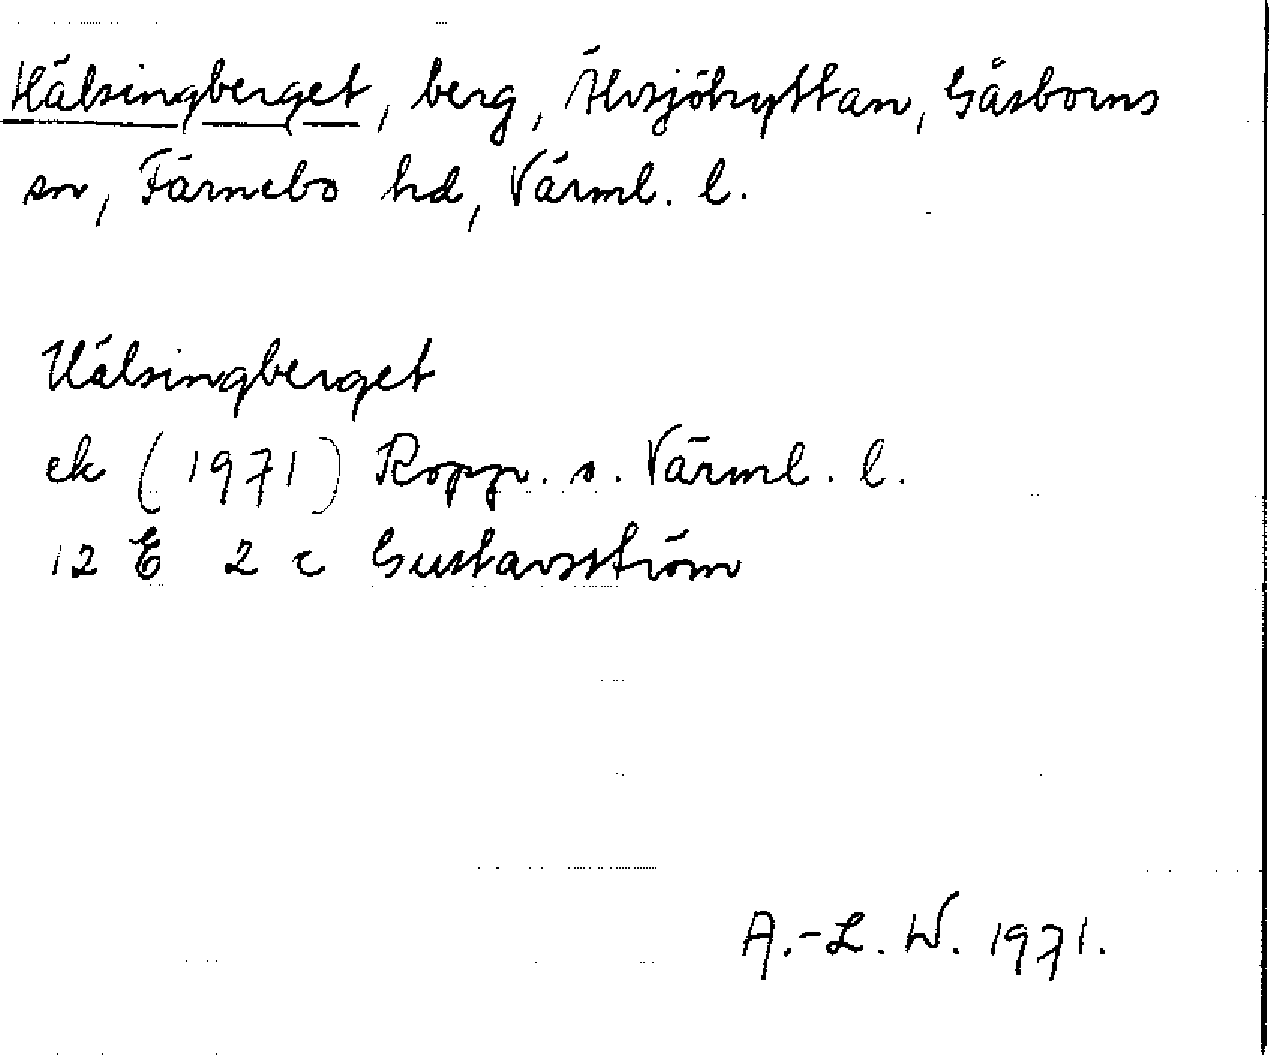 Hälsingberget, berg, Älvsjöhyttan, Gåsborns
sn, Färnebo hd, Värml. l.
Hälsingberget
ek (1971) Kopp. o. Värml. l.
12 E 2 c Gustavsström
A.-L. W. 1971.